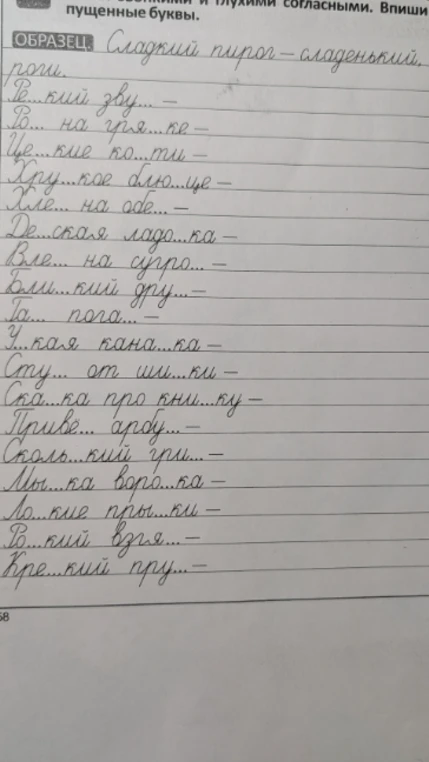 и глухими согласными. Впиши
пущенные буквы.
ОБРАЗЕЦ. Сладкий пирог – сладенький,
роги.
Ре...кий зву... –
Ро... на гря...ке –
Це...кие ко...ти –
Хру...кое блю...це –
Хле... на обе... –
Де...ская ладо...ка –
Вле... на сугро... –
Бли...кий дру... –
Га... пога... –
У...кая кана...ка –
Сту... от ши...ки –
Ска...ка про кни...ку –
Приве... арбу... –
Сколь...кий гри... –
Мы...ка воро...ка –
Ло...кие пры...ки –
Ро...кий взгля... –
Кре...кий пру... –
58